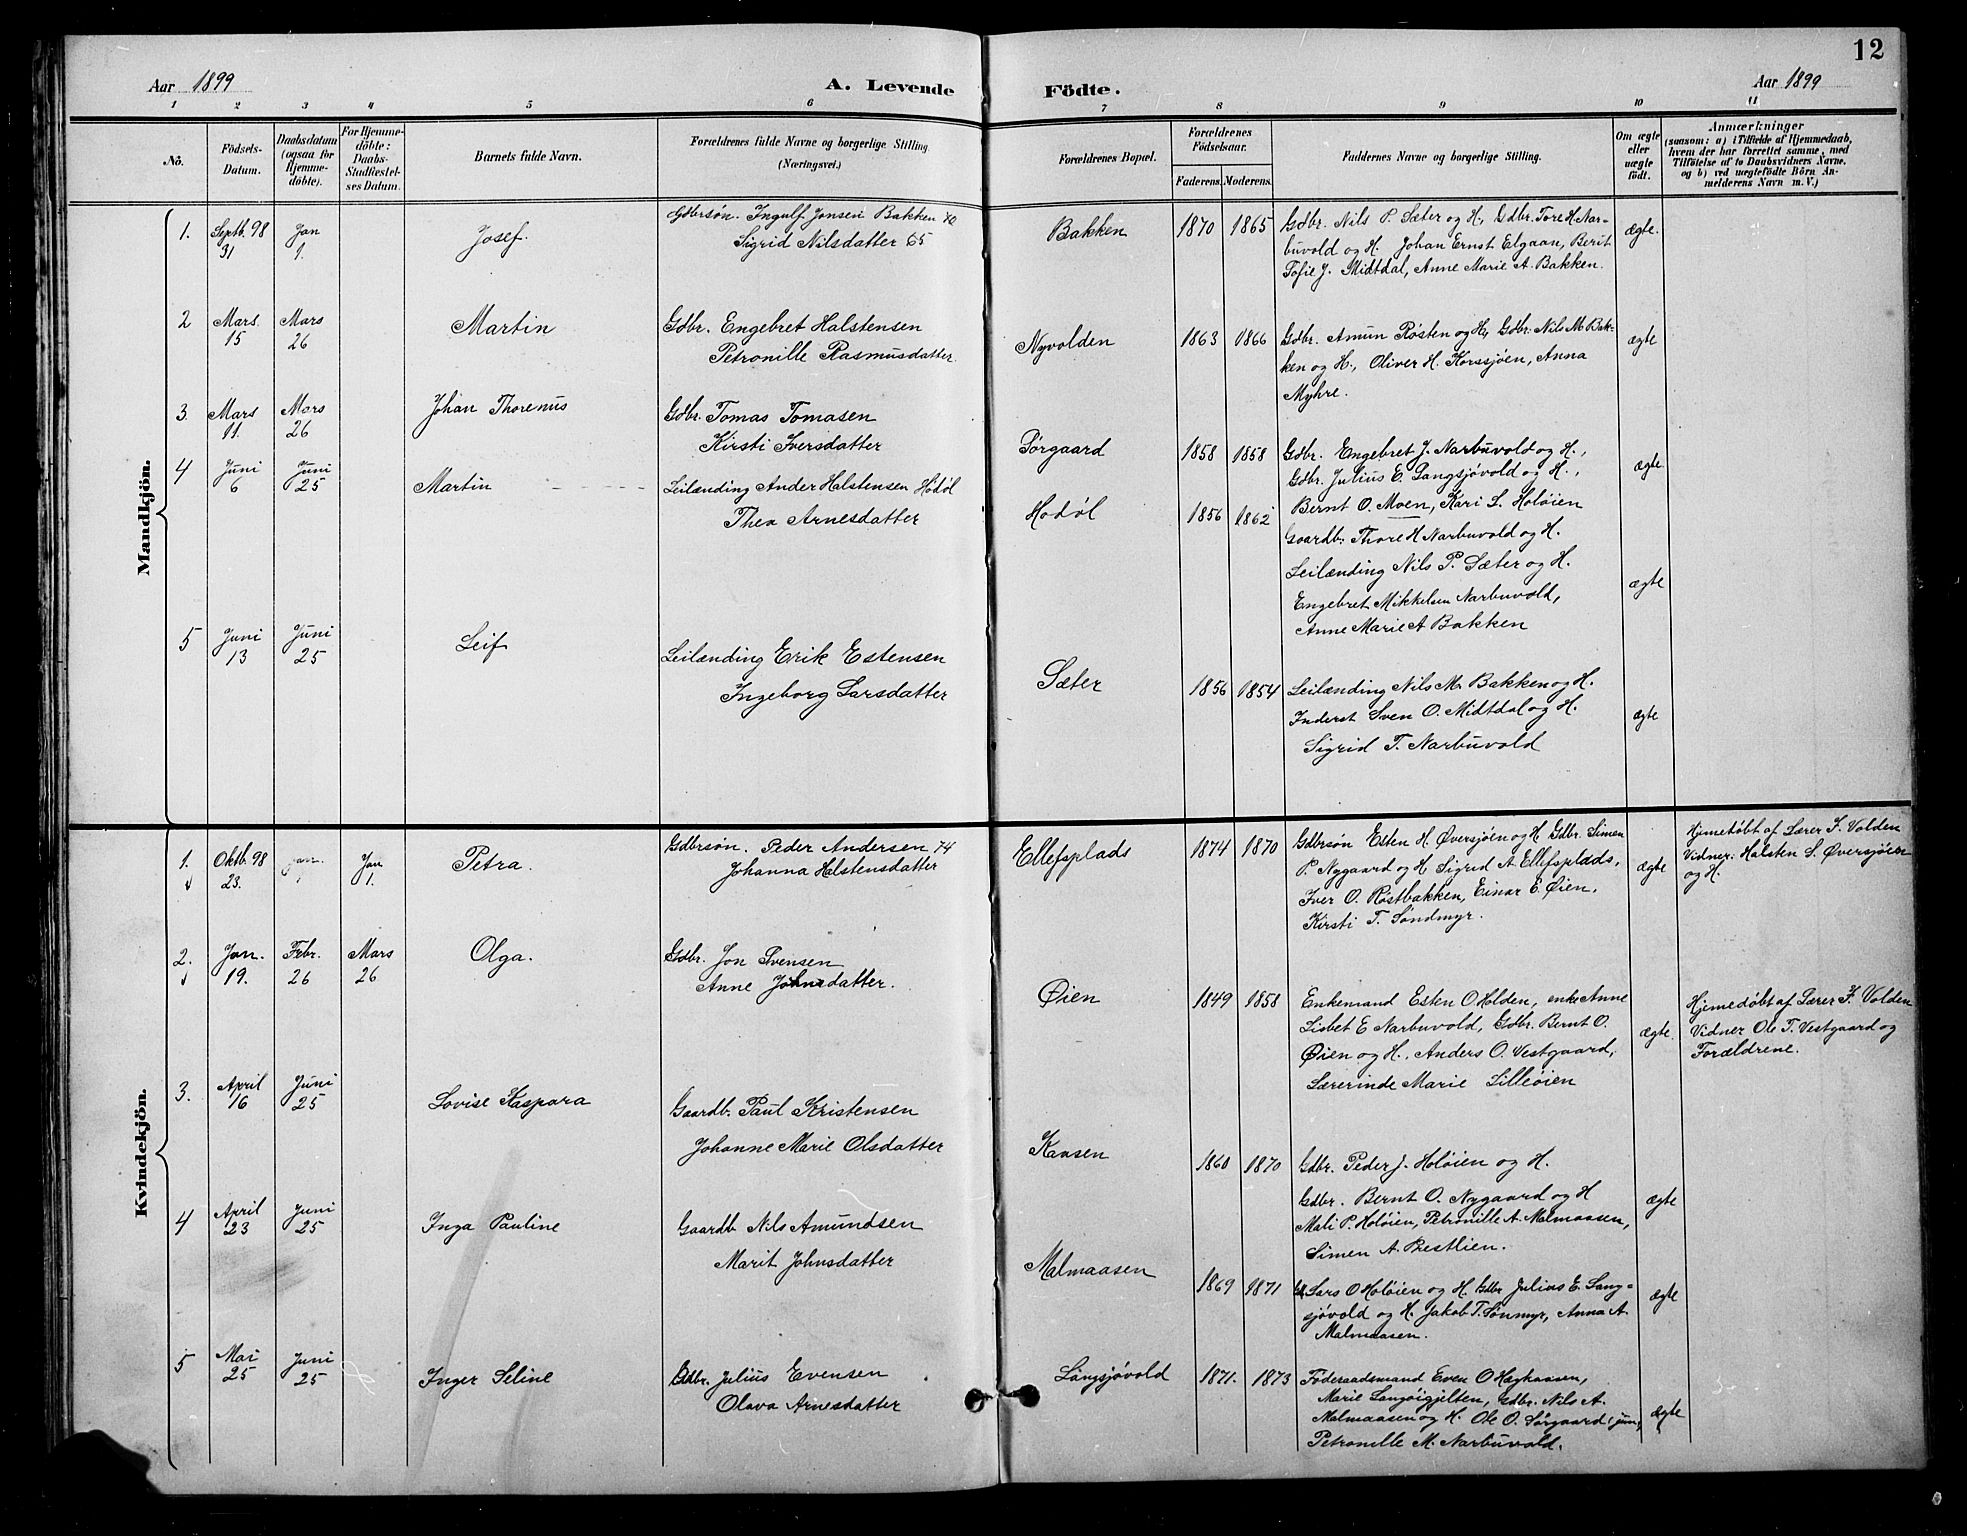 12
Aar 1899 A. Levende Födte. Aar 1899
1 2 3 4 5 6 7 8 9 10 11
No.
Födsels-Datum.
Daabsdatum (ogsaa for Hjemme-döbte).
For Hjemme-döbte: Daabs-Stadfæstel-ses Datum.
Barnets fulde Navn.
Forældrenes fulde Navne og borgerlige Stilling.
(Næringsvei.)
Forældrenes Bopæl.
Forældrenes Födselsaar.
Faderens. Moderens.
Faddernes Navne og borgerlige Stilling.
Om ægte eller uægte födt.
Anmærkninger
(saasom: a) i Tilfælde af Hjemmedaab,
hvem der har forrettet samme, med
Tilföielse af to Daabsvidners Navne,
og b) ved uægtefödte Börn An-
melderens Navn m. V.)
Mandkjön.
1. Septb. 98 31 Jan 1. Josef. Gdbrsøn. Ingulf Jonsen Bakken 70
Sigrid Nilsdatter 65
Bakken 1870 1865 Gdbr. Nils P. Sæter og H., Gdbr. Tore H. Nar-
buvold og H. Johan Ernst Elgaan, Berit
Sofie J. Midtdal, Anne Marie A. Bakken.
ægte.
2 Mars 15 Mars 26 Martin Gdbr. Engebret Halstensen
Petronille Rasmusdatter
Nyvolden 1863 1866 Gdbr. Amun Røsten og H., Gdbr. Nils M. Bak-
ken og H., Oliver H. Korssjøen, Anna
Myhre.
ægte
3. Mars 11. Mars 26 Johan Thorenus Gdbr. Tomas Tomasen
Kirsti Iversdatter
Sørgaard 1858 1858 Gdbr. Engebret J. Narbuvold og H.,
Gdbr. Julius E. Langsjøvold og H.,
Bernt O. Moen, Kari L. Holøien
ægte
4 Juni 6 Juni 25 Martin Leilænding Ander Halstensen Hodøl
Thea Arnesdatter
Hodøl 1856 1862 Gaardb. Thore H Narbuvold og H.
Leilænding Nils P. Sæter og H.
Engebret Mikkelsen Narbuvold,
Anne Marie A Bakken
ægte
5 Juni 13 Juni 25 Leif Leilænding Erik Estensen
Ingeborg Larsdatter
Sæter 1856 1854 Leilænding Nils M. Bakken og H.
Inderst Sven O. Midtdal og H.
Sigrid T. Narbuvold
ægte
Kvindekjön.
1. Oktb. 98 23. Jan 1. Petra. Gdbrsøn. Peder Andersen 74
Johanna Halstensdatter
Ellefsplads 1874 1870 Gdbrsøn Esten H. Øversjøen og H. Gdbr. Simen
P. Nygaard og H Sigrid A. Ellefsplads,
Iver O. Røstbakken, Einar E. Øien,
Kirsti T. Søndmyr.
ægte
Hjemedøbt af Lærer F. Volden
Vidner: Halsten S. Øversjøen
og H.
2. Jan. 19. Febr. 26 Mars 26 Olga. Gdbr. Jon Svensen
Anne Johnsdatter.
Øien 1849 1858 Enkemand Esten O Holden, enke Anne
Lisbet E Narbuvold, Gdbr. Bernt O.
Øien og H. Anders O. Vestgaard,
Lærerinde Marie Lilleøien
ægte.
Hjemedøbt af Lærer F. Volden
Vidner Ole T. Vestgaard og
Forældrene.
3. April 16 Juni 25 Lovise Kaspara Gaardb. Paul Kristensen
Johanne Marie Olsdatter
Kaasen 1860 1870 Gdbr. Peder J. Holøien og H.
Gdbr. Bernt O. Nygaard og H
Mali P. Holøien, Petronille A. Malmaasen,
Simen A. Brestlien.
ægte
4 April 23 Juni 25 Inga Pauline Gaardb Nils Amundsen
Marit Johnsdatter
Malmaasen 1869 1871 Lars O Holøien og H. Gdbr Julius E. Lang-
sjøvold og H. Jakob T. Sønmyr, Anna A.
Malmaasen.
ægte
5 Mai 25 Juni 25 Inger Seline Gdbr. Julius Evensen
Olava Arnesdatter
Langsjøvold 1871. 1873 Føderaadsmand Even O Haghaasen,
Marie Langøigjelten, Gdbr. Nils A.
Malmaasen og H. Ole O. Sørgaard jun,
Petronille M. Narbuvold.
ægte